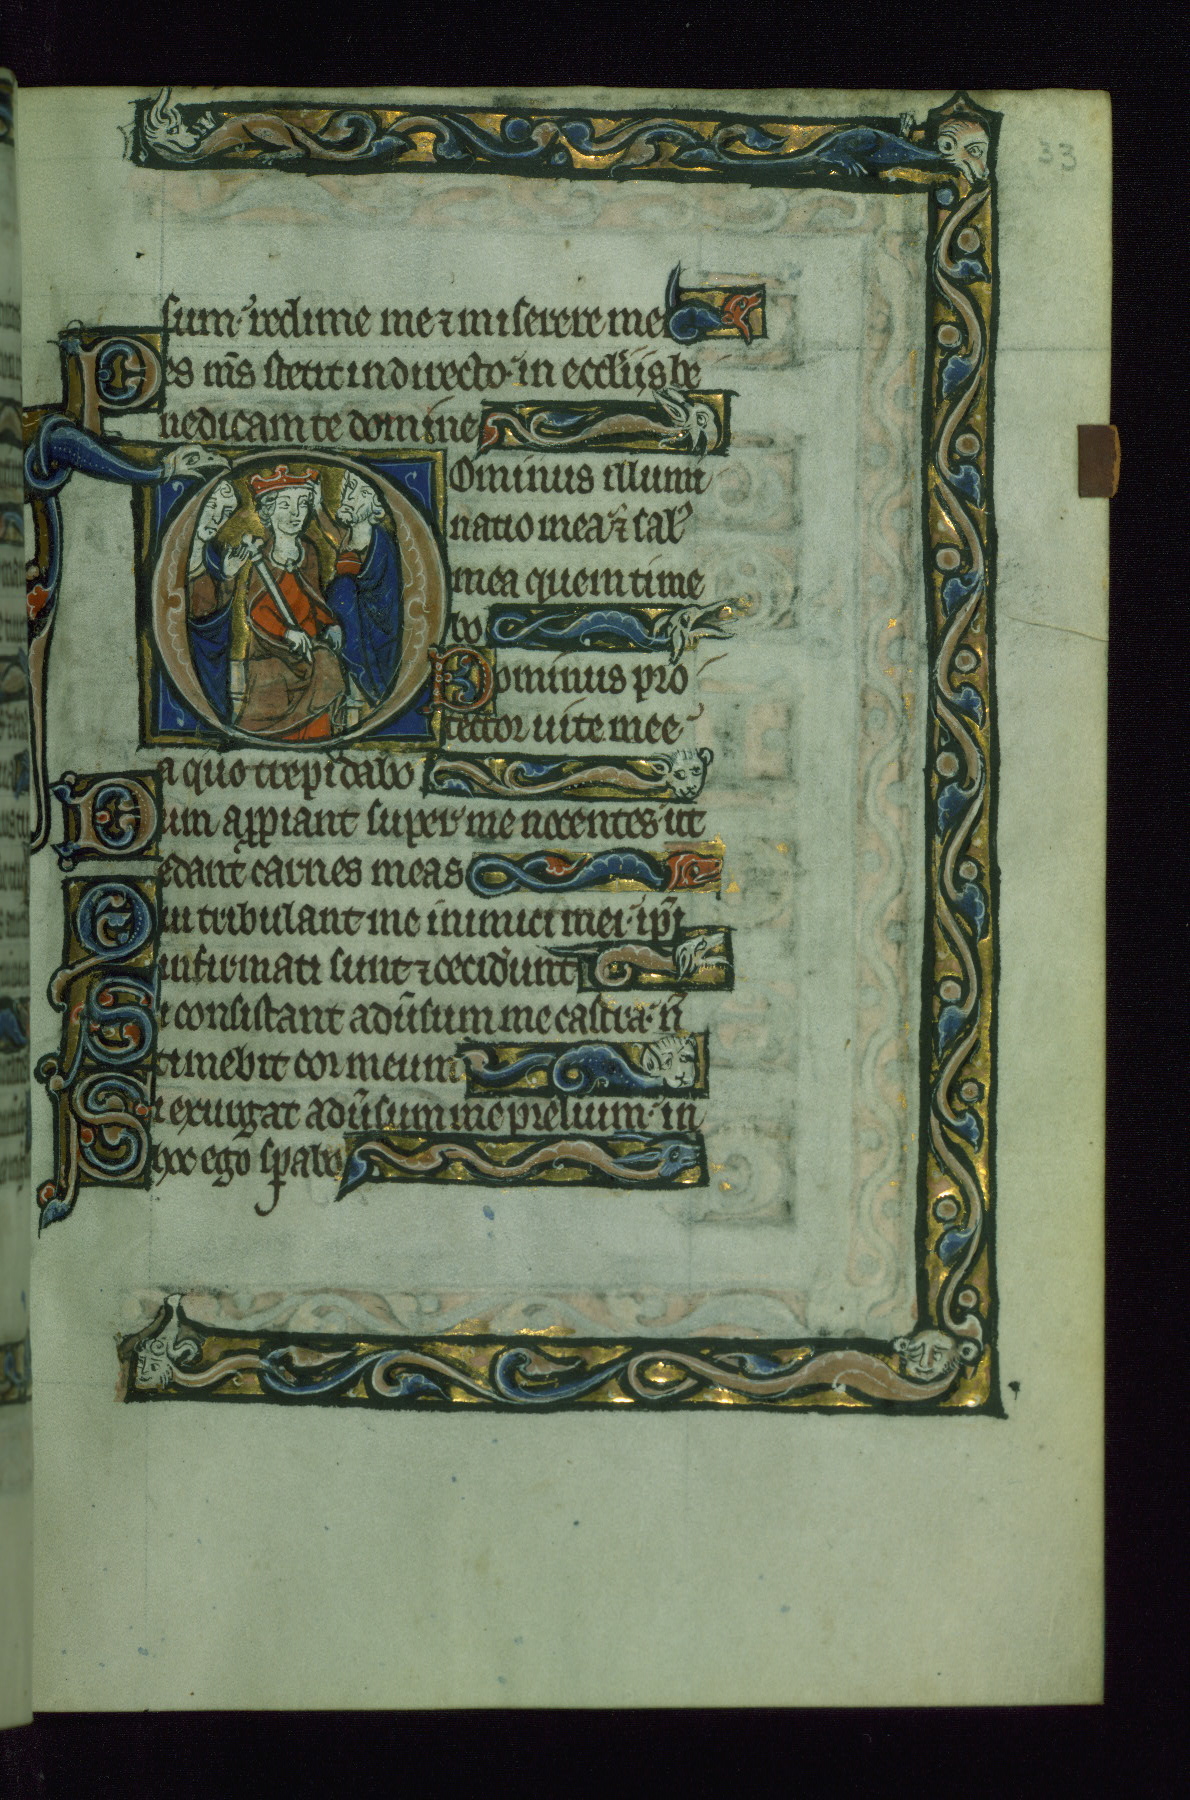 33
sum· redime me ⁊ miserere mei
Pes m̄s stetit in directo· in eccl̄ijs be
nedicam te domine
Dominus illumi
natio mea· ⁊ sal'
mea quem time
bo
Dominus pro
tector uite mee·
a quo trepidabo
Dum appiant super me nocentes· ut
edant carnes meas
Qui tribulant me inimici mei· ip̄i
infirmati sunt ⁊ cecid'unt
Si consistant adūsum me castra· n̄
timebit cor meum
Si exurgat adūsum me prelium· in
hoc ego sp̄abo